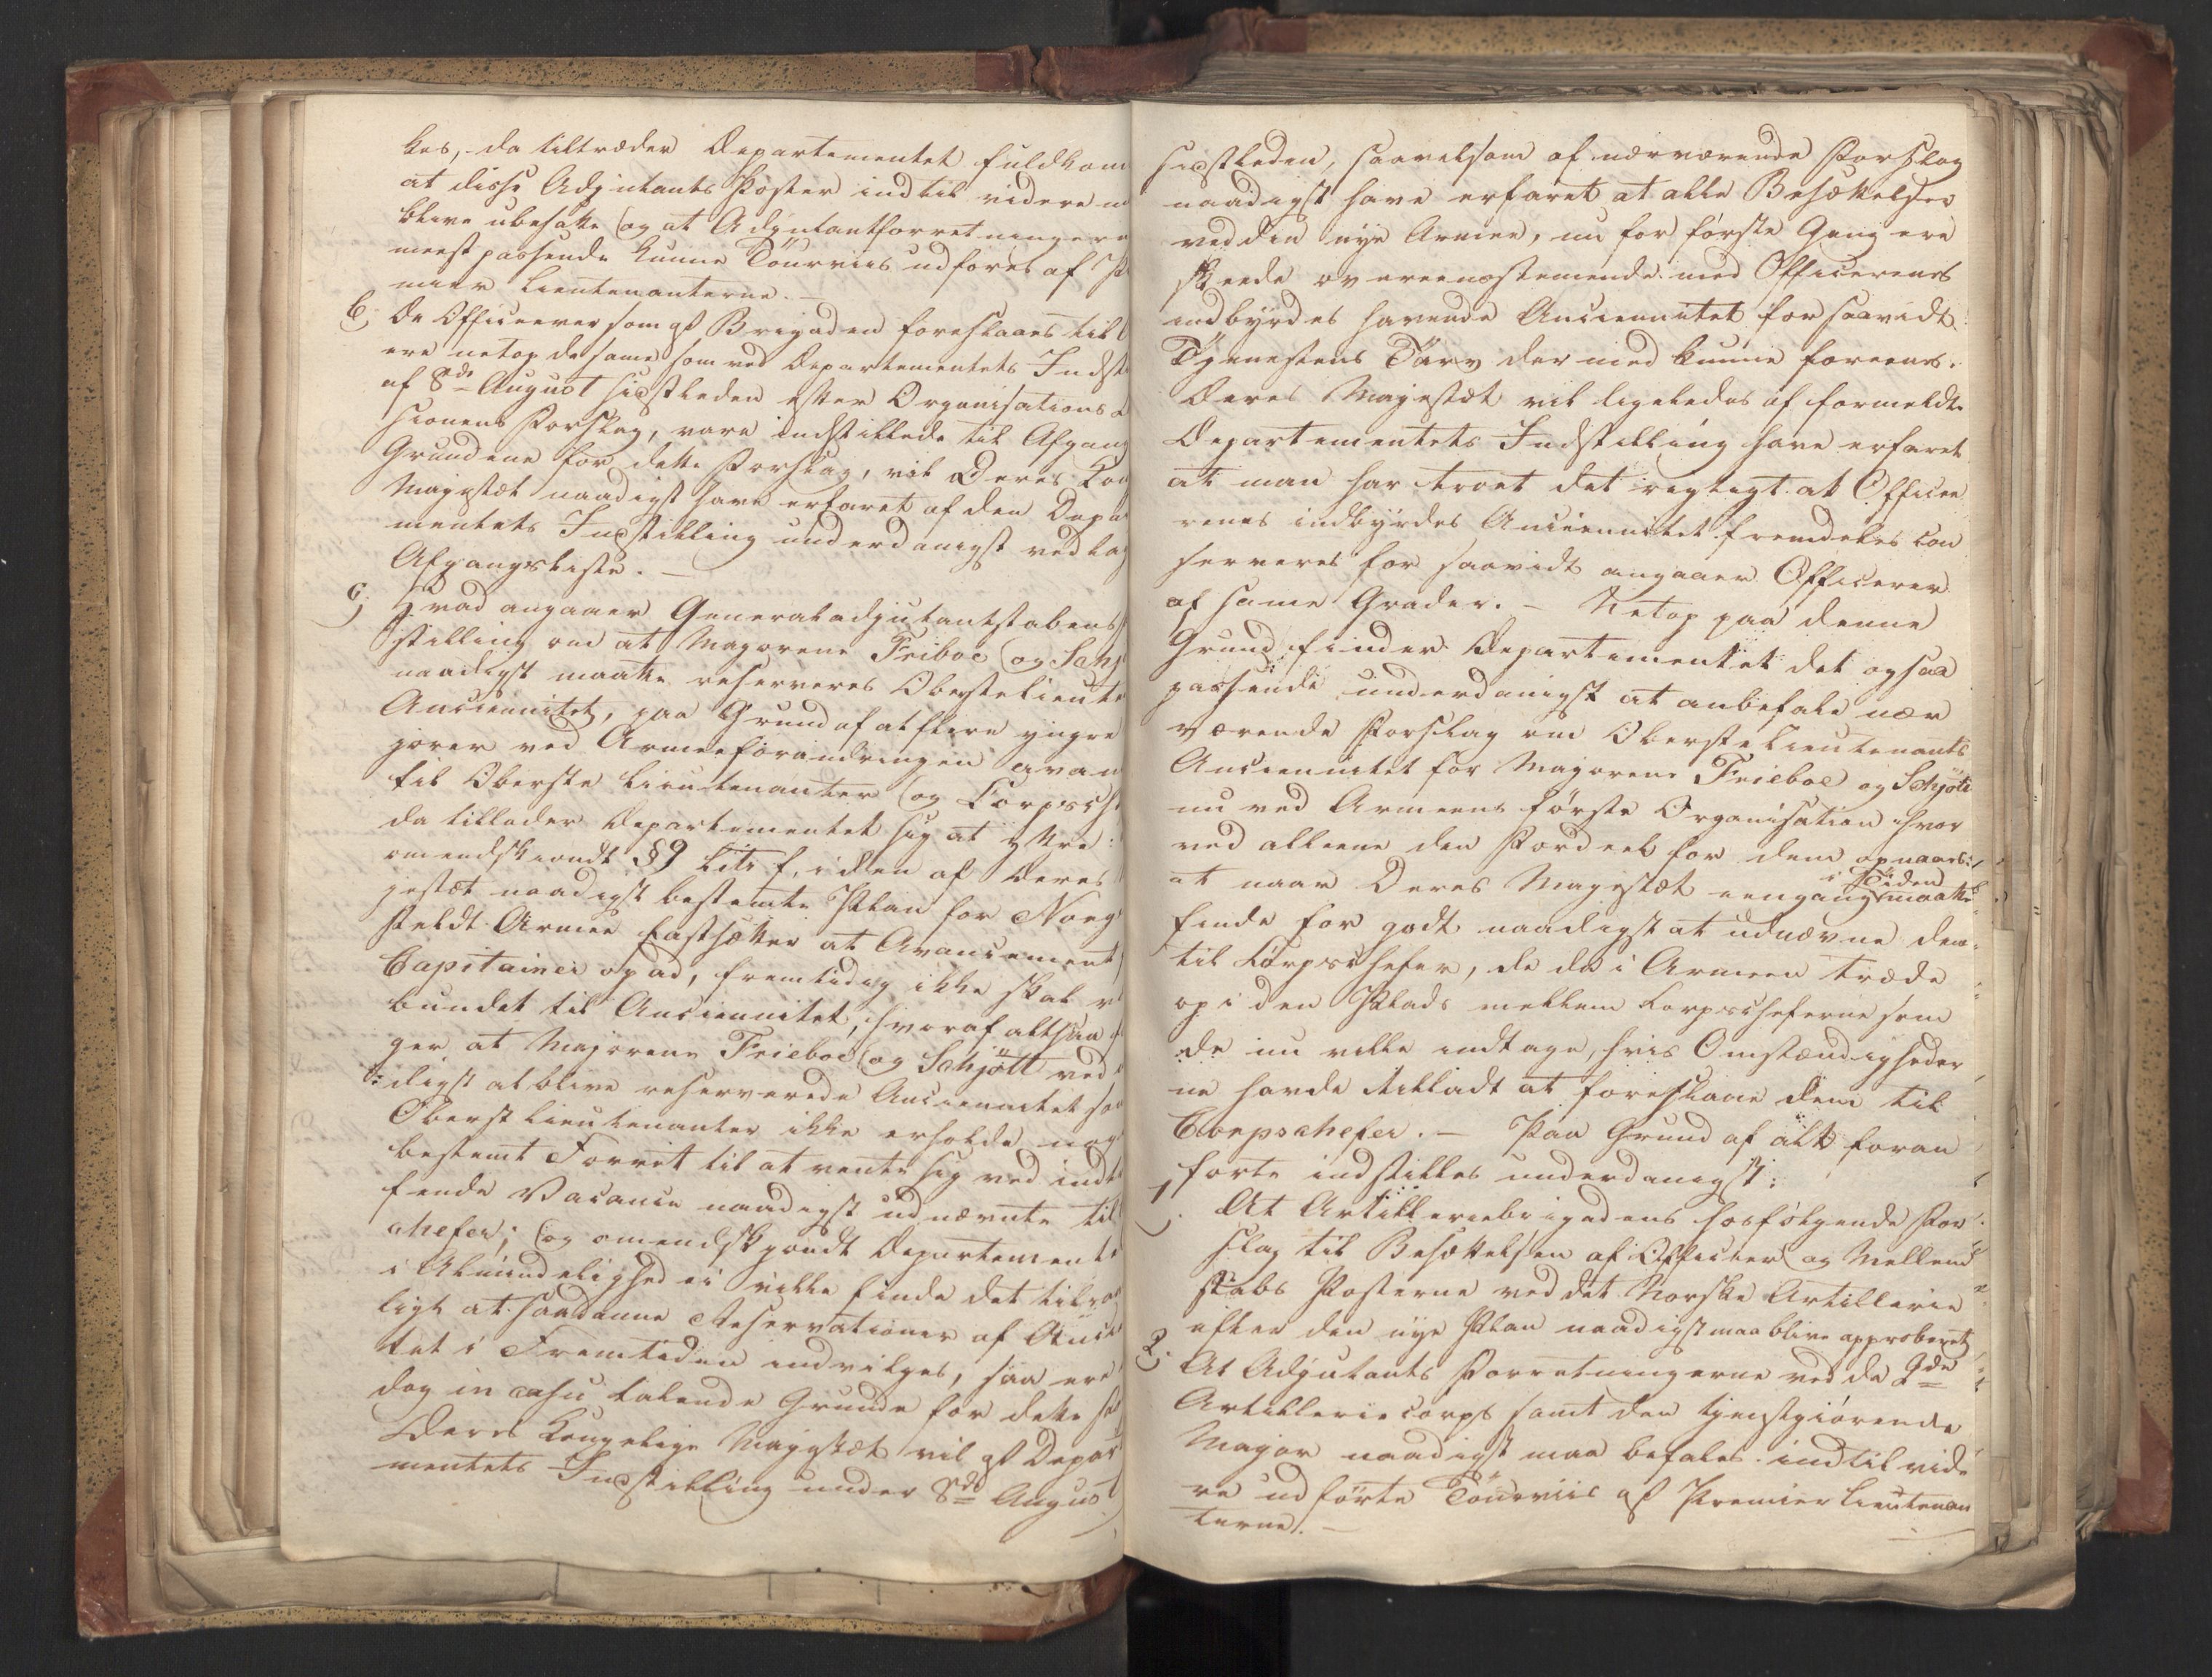 kes, da tiltræder Departementet fuldkom
at disse Adjutants Poster indtil videre m
blive ubesatte og at Adjutantforretningerne
meest passende kunne Tourviis udføres af P
mier Lieutenanterne. —
b, De Officerer som af Brigaden foreslaaes til
ere netop de samme som ved Departementets Indst
af 8de August sidstleden efter Organisations
sionens Forslag, vare indstillede til Afgang
Grundene for dette Forslag, vil Deres Kon
Majestæt naadigst have erfaret af den Depar
mentets Indstilling underdanigst vedlag
Afgangsliste. —
c, Hvad angaaer Generaladjutantstabens
stilling om at Majorene Friboe og Schj
naadigst maatte reserveres Obersteleute
Anciennitet, paa Grund af at flere yngre
jorer ved Armeeforandringen avan
til Oberste Lieutenanter og Corpsch
da tillader Departementet sig at yttre:
omendskiøndt § 9 Litr f, i den af Deres
jestæt naadigst bestemte Plan for Norg
Feldt Armee fastsætter at Avancement
Capitainer opad, fremtidig ikke skal v
bundet til Anciennitet, hvoraf altsaa
ger at Majorene Frieboe og Schjøtt ved
digst at blive reserverede Anciennitet som
Oberst Lieutenanter ikke erholde nog
bestemt Forret til at vente sig ved indt
fende Vacance naadigst udnævnte til
chefer; og omendskjøndt Departement
i Almindelighed ei vilde finde det tilraa
ligt at saadanne Reservationer af Ancie
tet i Fremtiden indvilges, saa ere
dog in casu talende Grunde for dette
Deres Kongelige Majestæt vil af Depar
mentets Indstilling under 8de August
sidstleden, saavelsom af nærværende Forslag
naadigst have erfaret at alle Besættelser
ved den nye Armee, nu for første Gang ere
skeede overeensstemmende med Officerenes
indbyrdes havende Anciennitet forsaavidt
Tjenestens Tarv dermed kunne forenes.
Deres Majestæt vil ligeledes af formeldte
Departementets Indstilling have erfaret
at man har troet det rigtigt at Office
renes indbyrdes Anciennitet fremdeles con
serveres for saavidt angaaer Officerer
af samme Grader. — Netop paa denne
Grund finder Departementet det ogsaa
passende underdanigst at anbefale nær
værende Forslag om Oberstelieutenants
Anciennitet for Majorene Frieboe og Schjøtt
nu ved Armeens første Organisation hvor
ved alleene den Fordeel for dem opnaaes:
i Tiden
at naar Deres Majestæt eengang maatte
finde for godt naadigst at udnævne dem
til Corpschefer, de da i Armeen træde
op i den Plads mellem Corpscheferne som
de nu ville indtage, hvis Omstændigheder
ne havde tilladt at foreslaae dem til
Corpschefer. — Paa Grund af alt foran
førte indstilles underdanigst:
1, At Artilleriebrigadens hosfølgende For
slag til Besættelsen af Officier og Mellem
stabs Posterne ved det Norske Artillerie
efter den nye Plan naadigst maa blive approberet
2, At Adjutants Forretningerne ved de 2de
Artilleriecorps samt den tjenstgiørende
Major naadigst maa befales indtil vide
re udførte Tourviis af Premier Lieutenan
terne. —